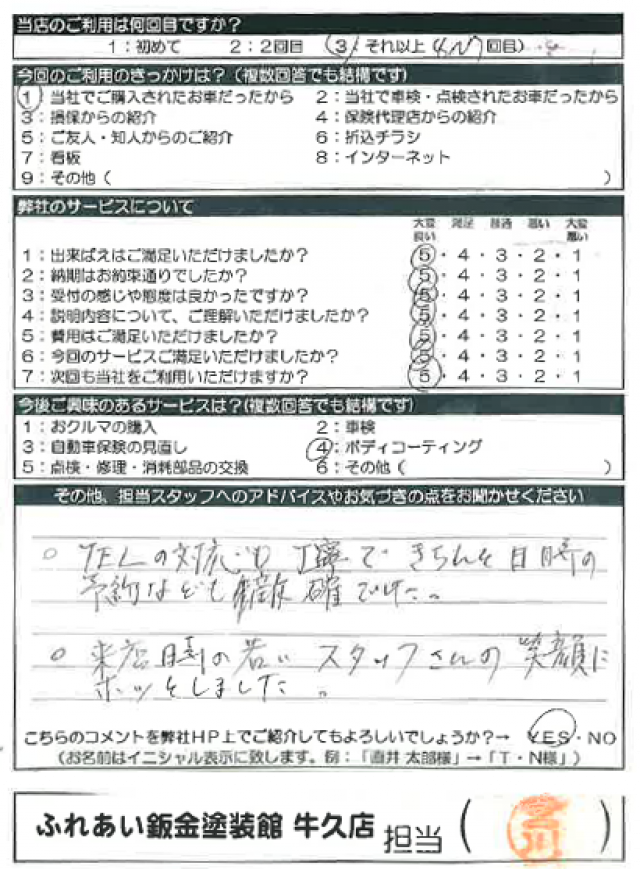 当店のご利用は何回目ですか？
1：初めて　2：2回目　(3)それ以上(4〜　回目)
今回のご利用のきっかけは？（複数回答でも結構です）
1：当社でご購入されたお車だったから　2：当社で車検・点検されたお車だったから
3：損保からの紹介　4：保険代理店からの紹介
5：ご友人・知人からのご紹介　6：折込チラシ
7：看板　8：インターネット
9：その他（　）
弊社のサービスについて
大変良い　満足　普通　悪い　大変悪い
1：出来ばえはご満足いただけましたか？　5・4・3・2・1
2：納期はお約束通りでしたか？　5・4・3・2・1
3：受付の感じや態度は良かったですか？　5・4・3・2・1
4：説明内容について、ご理解いただけましたか？　5・4・3・2・1
5：費用はご満足いただけましたか？　5・4・3・2・1
6：今回のサービスご満足いただけましたか？　5・4・3・2・1
7：次回も当社をご利用いただけますか？　5・4・3・2・1
今後ご興味のあるサービスは？(複数回答でも結構です)
1：おクルマの購入　2：車検
3：自動車保険の見直し　4：ボディコーティング
5：点検・修理・消耗部品の交換　6：その他（　）
その他、担当スタッフへのアドバイスやお気づきの点をお聞かせください
○ TELの対応も丁寧できちんと日時の
予約なども　確でした。
○ 来店時の若いスタッフさんの笑顔に
ホッとしました。
こちらのコメントを弊社HP上でご紹介してもよろしいでしょうか？→　YES・NO
（お名前はイニシャル表示に致します。例：「直井 太郎様」→「T・N様」）
ふれあい鈑金塗装館 牛久店 担当（　）